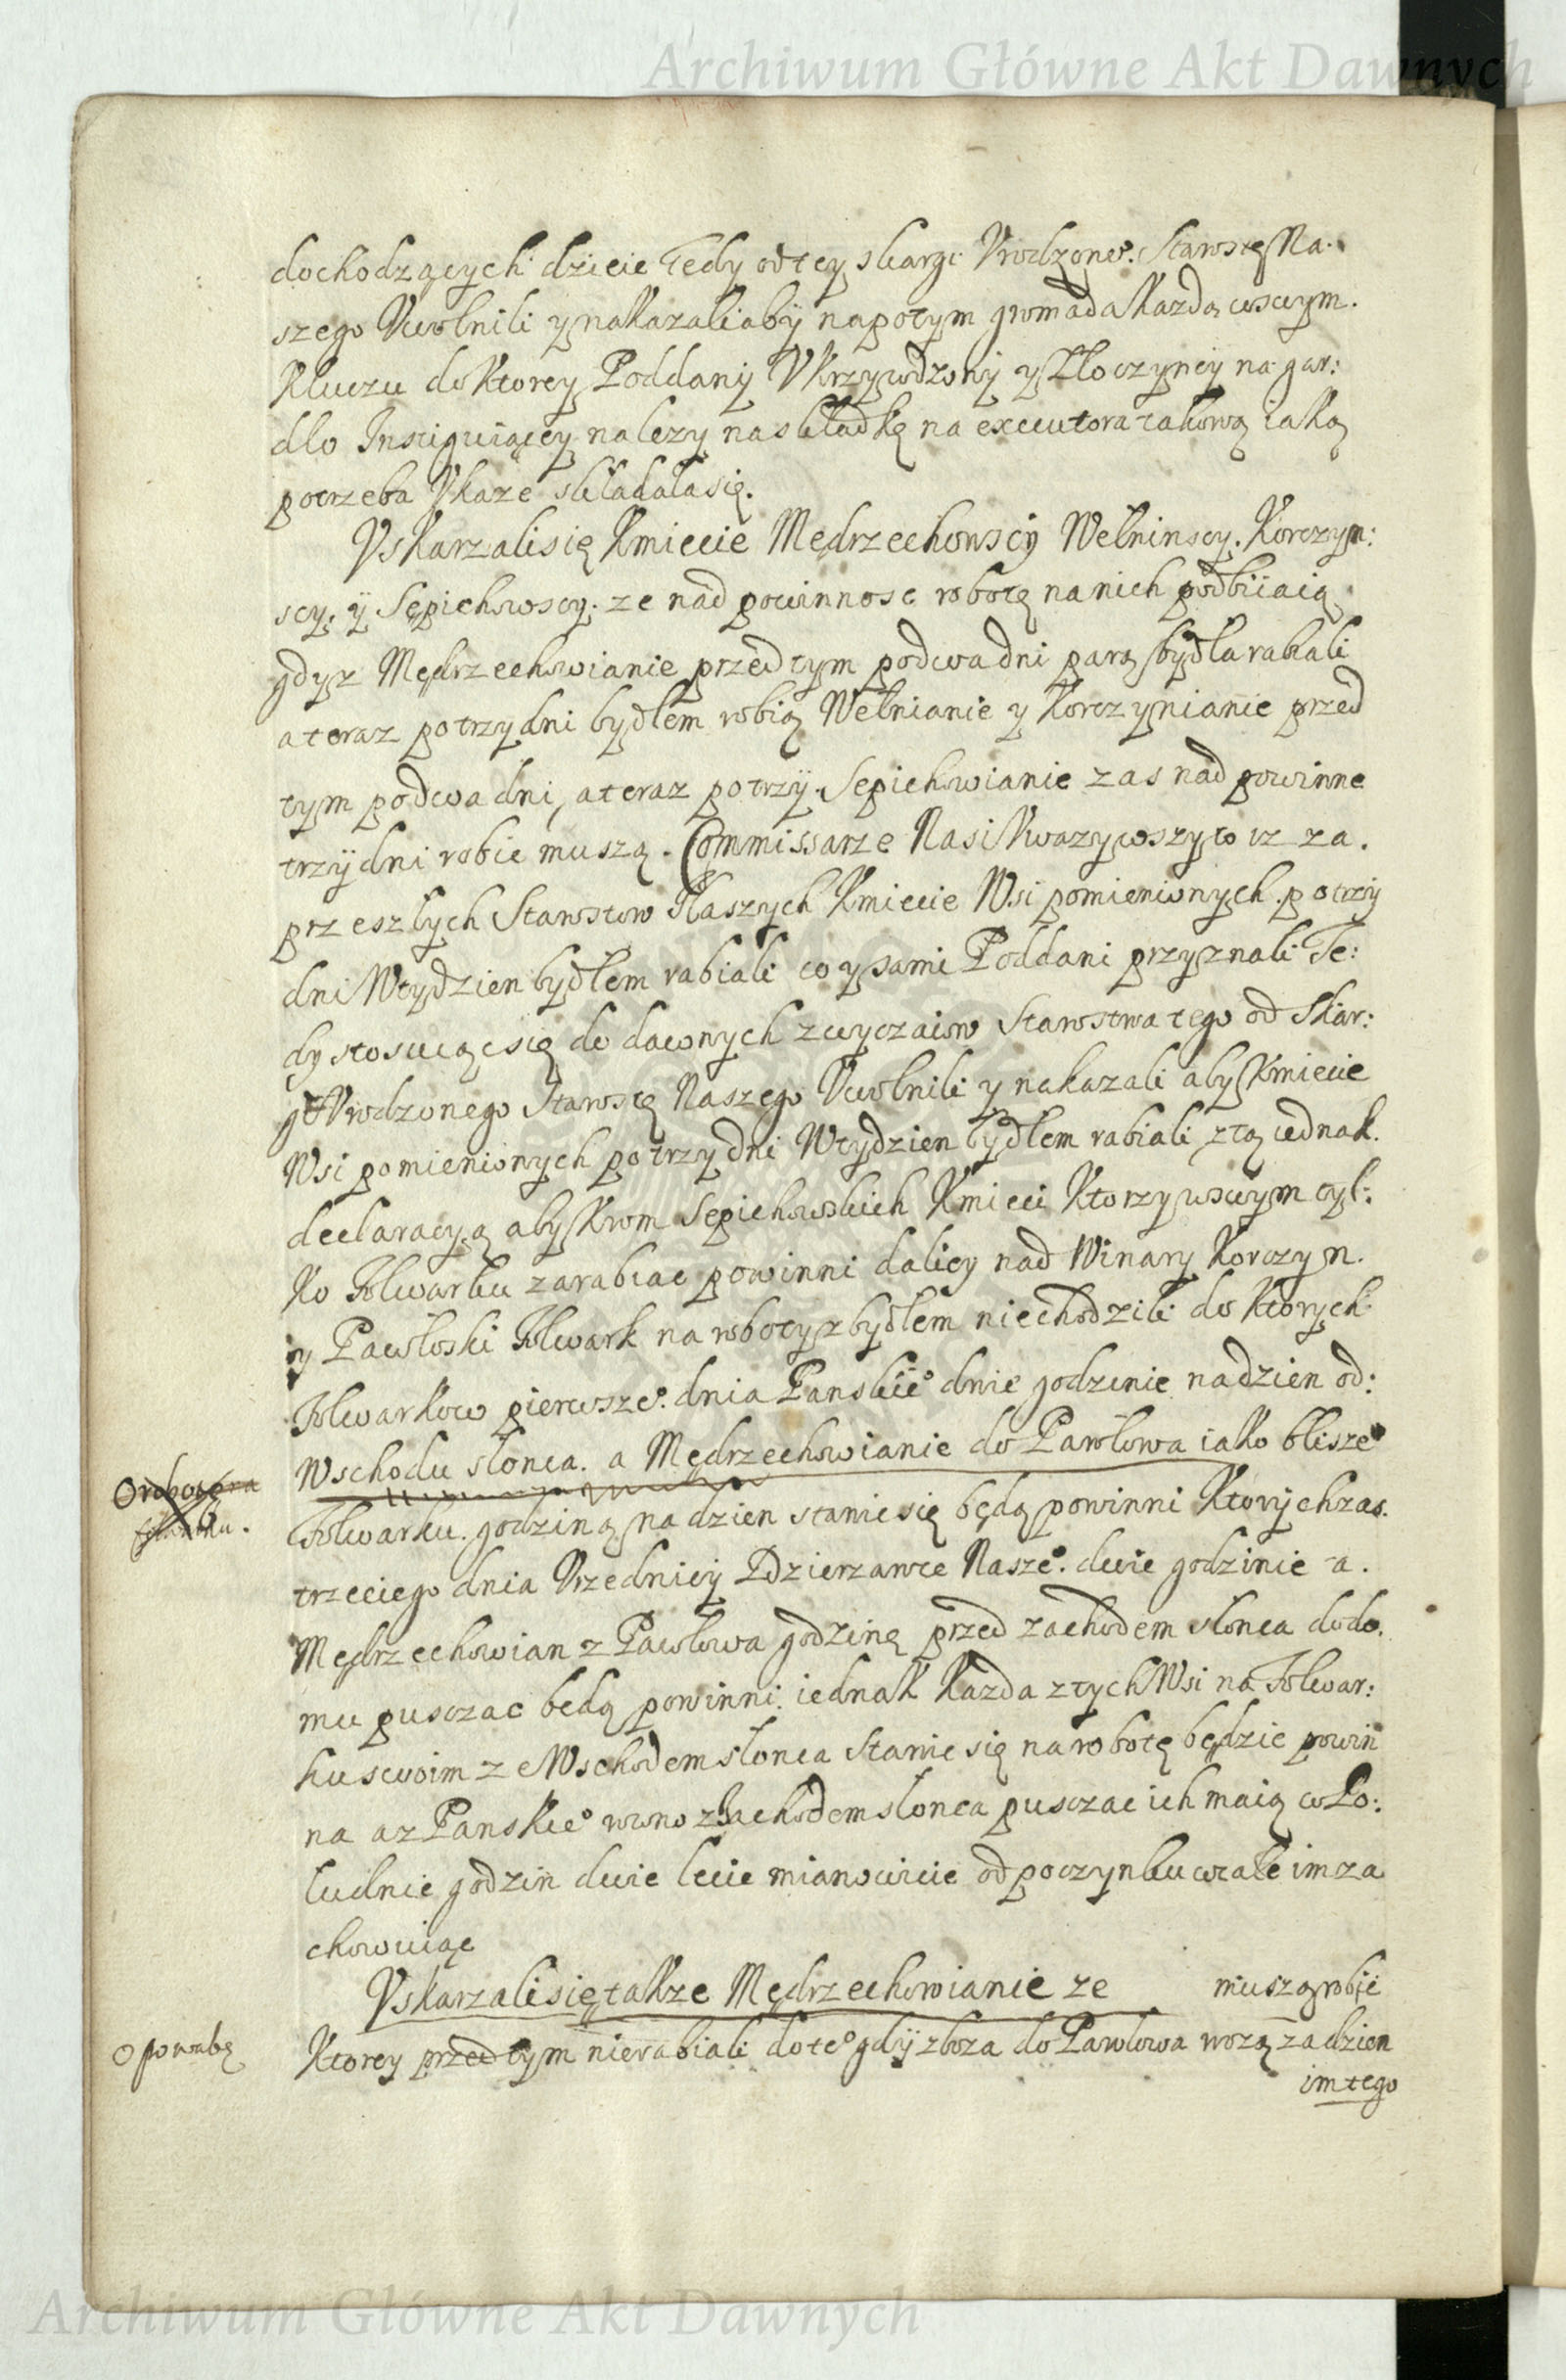 Archiwum Główne Akt Dawnych
dochodzących dzieie Tedy od tey skargi Vrodzone°. Starostę Na.
szego Vwolnili y nakazali aby napotym gromada kazda w swym.
Kluczu do ktorey Poddany Vkrzywdzony y Złoczyncy na gar:
dło Instiguiący nalezy na składkę na executora takową iaką
potrzeba Vkaze składała się.
Vskarzali się Kmiecie Mędrzechowscy Wełninscy. Korczyn:
scy. y Sępichowscy. ze nad powinnosc robotę na nich podbiiaią
gdyz Mędrzechowianie przed tym po dwa dni parą bydła rabiali
a teraz po trzy dni bydłem robią Wełnianie y Korczynianie przed
tym po dwa dni, a teraz po trzy. Sępichowianie zas nad powinne
trzy dni robic muszą. Commissarze Nasi Vwazywszy to iz za.
przeszłych Starostow Naszych Kmiecie Wsi pomienionych. po trzy
dni W tydzien bydłem rabiali co y sami Poddani przyznali Te:
dy stosuiąc się do dawnych zwyczaiow Starostwa tego od Skar:
gi Vrodzonego Starostę Naszego Vwolnili y nakazali aby Kmiecie
Wsi pomienionych po trzy dni W tydzien bydłem rabiali z tą iednak.
declaracyą aby krom Sępichowskich Kmieci Ktorzy w swym tyl:
ko Folwarku zarabiac powinni daliey nad Winary Korczyn.
y Pawłoski Folwark na roboty z bydłem nie chodzili do ktorych
Folwarkow pierwsze°. dnia Panskie° dnie godzinie na dzien od:
Wschodu słonca. a Mędrzechowianie do Pawłowa iako blisze°
Orobote na
folwarku.
Folwarku. godziną na dzien stanie się będą powinni Ktorych zas.
trzeciego dnia Vrzednicy Dzierzawce Nasze°. dwie godzinie a.
Mędrzechowian z Pawłowa godzinę przed zachodem słonca do do.
mu pusczac będą powinni. iednak kazda z tych Wsi na Folwar:
ku swoim ze Wschodem słonca stanie się na robotę będzie powin
na a z Panskie° rowno z Zachodem słonca pusczac ich maią w Po:
łudnie godzin dwie lecie mianowicie odpoczynku wcale im za
chowuiąc
Vskarzali się takze Mędrzechowianie ze muszą robic
o powabę
Ktorey przed tym nie rabiali do te° gdy zboza do Pawłowa wozą za dzien
im tego
Archiwum Główne Akt Dawnych